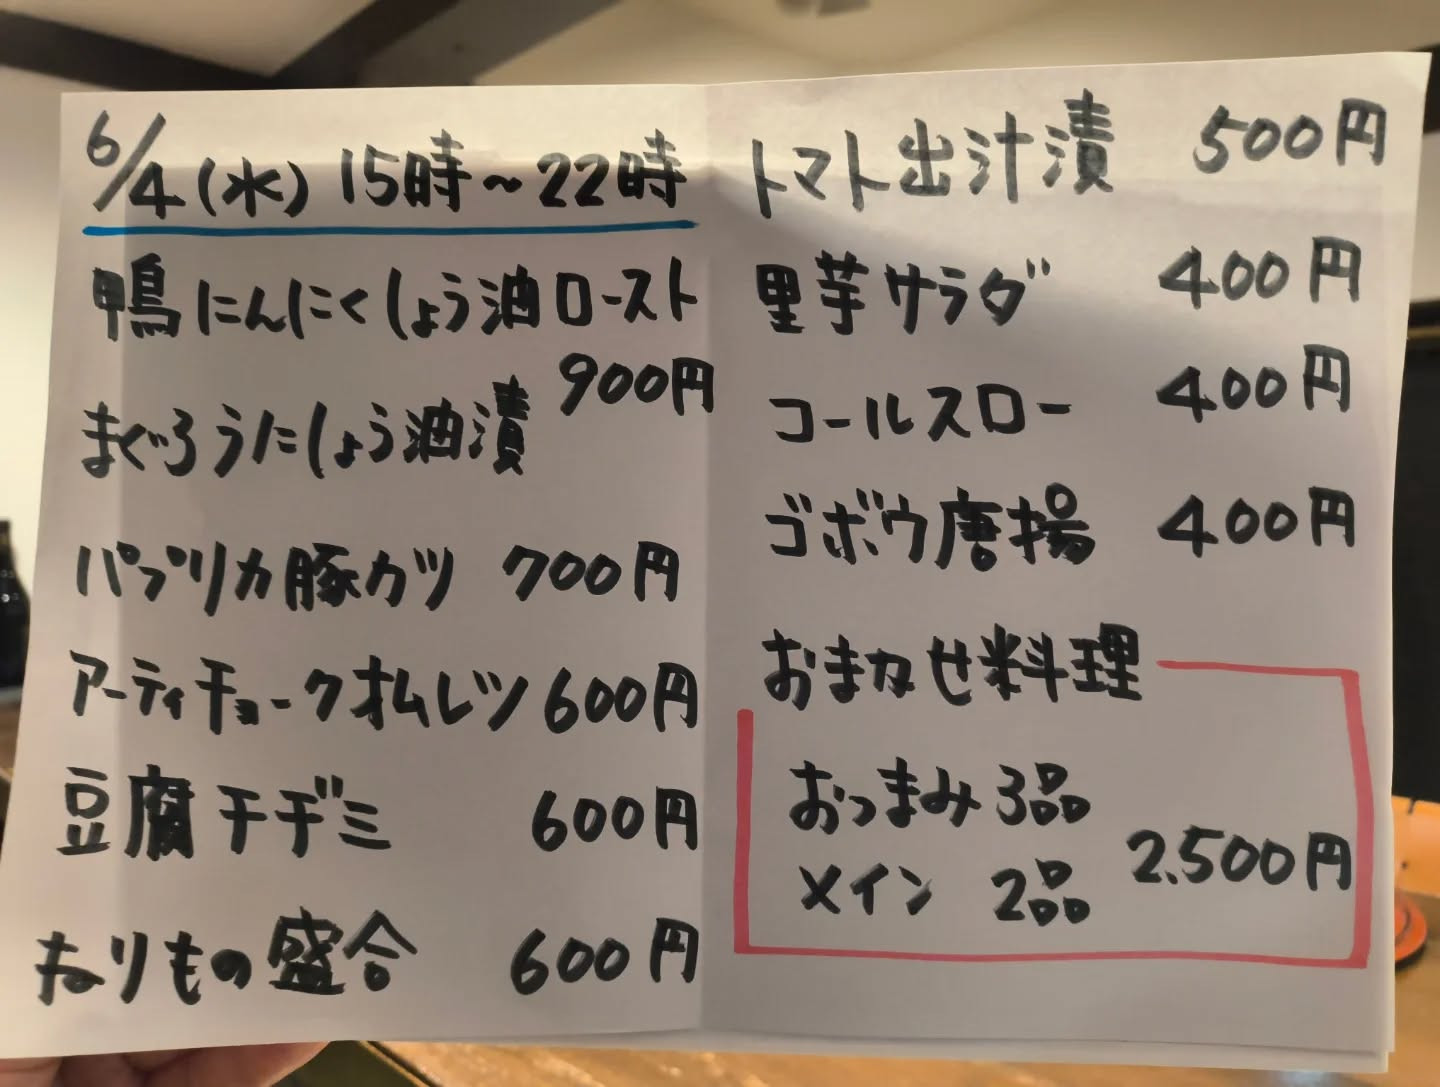 6/4(水) 15時～22時
鴨にんにくしょう油ロースト
900円
まぐろうにしょう油漬
パプリカ豚カツ 700円
アーティチョークオムレツ 600円
豆腐チヂミ 600円
ねりもの盛合 600円
トマト出汁漬 500円
里芋サラダ 400円
コールスロー 400円
ゴボウ唐揚 400円
おまかせ料理
おつまみ3品
メイン 2品 2.500円